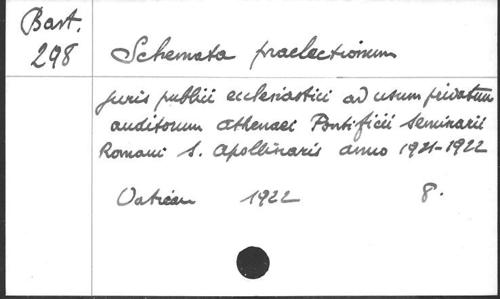 Bart.
298
Schemata praelectionum
juris publici ecclesiastici ad usum privatum
auditorum Athenaei Pontificii Seminarii
Romani S. Apollinaris anno 1921-1922
Vatican 1922 8.